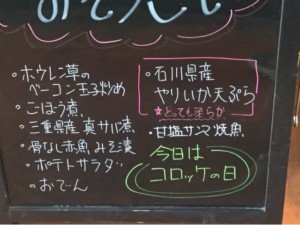 おでん
・ホウレン草の
ベーコン玉子炒め
・ごぼう煮
・三重県産 真サバ煮
・骨なし赤魚 みそ漬
・ポテトサラダ
・おでん
・石川県産
やりいか天ぷら
★とっても柔らか
・甘塩サンマ焼魚
今日は
コロッケの日